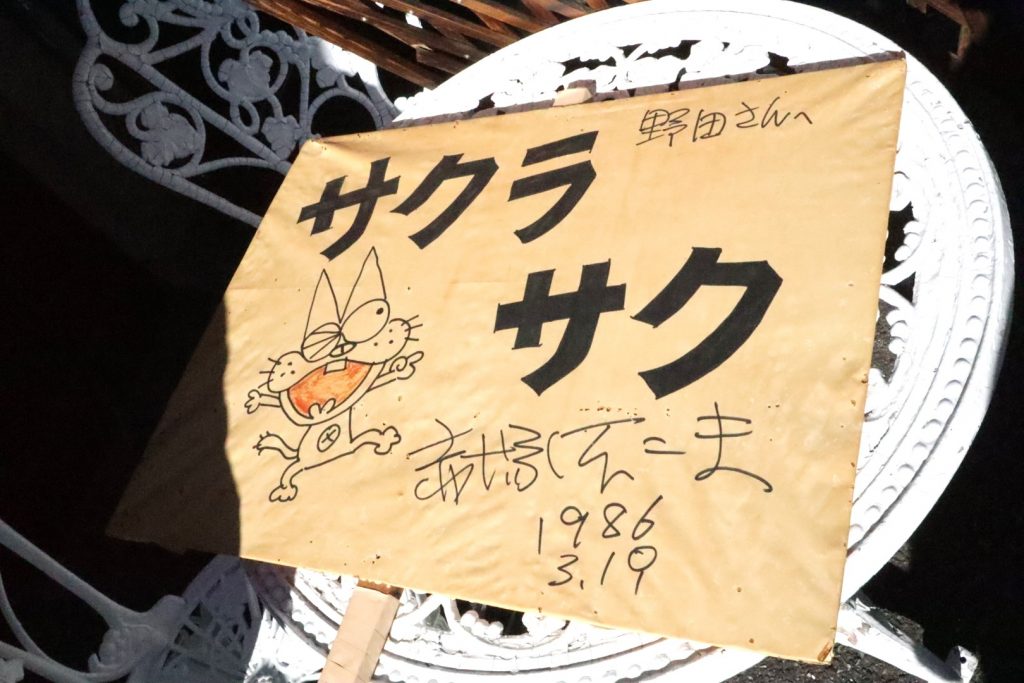 野田さんへ
サクラ
サク
赤塚不二夫
1986
3.19